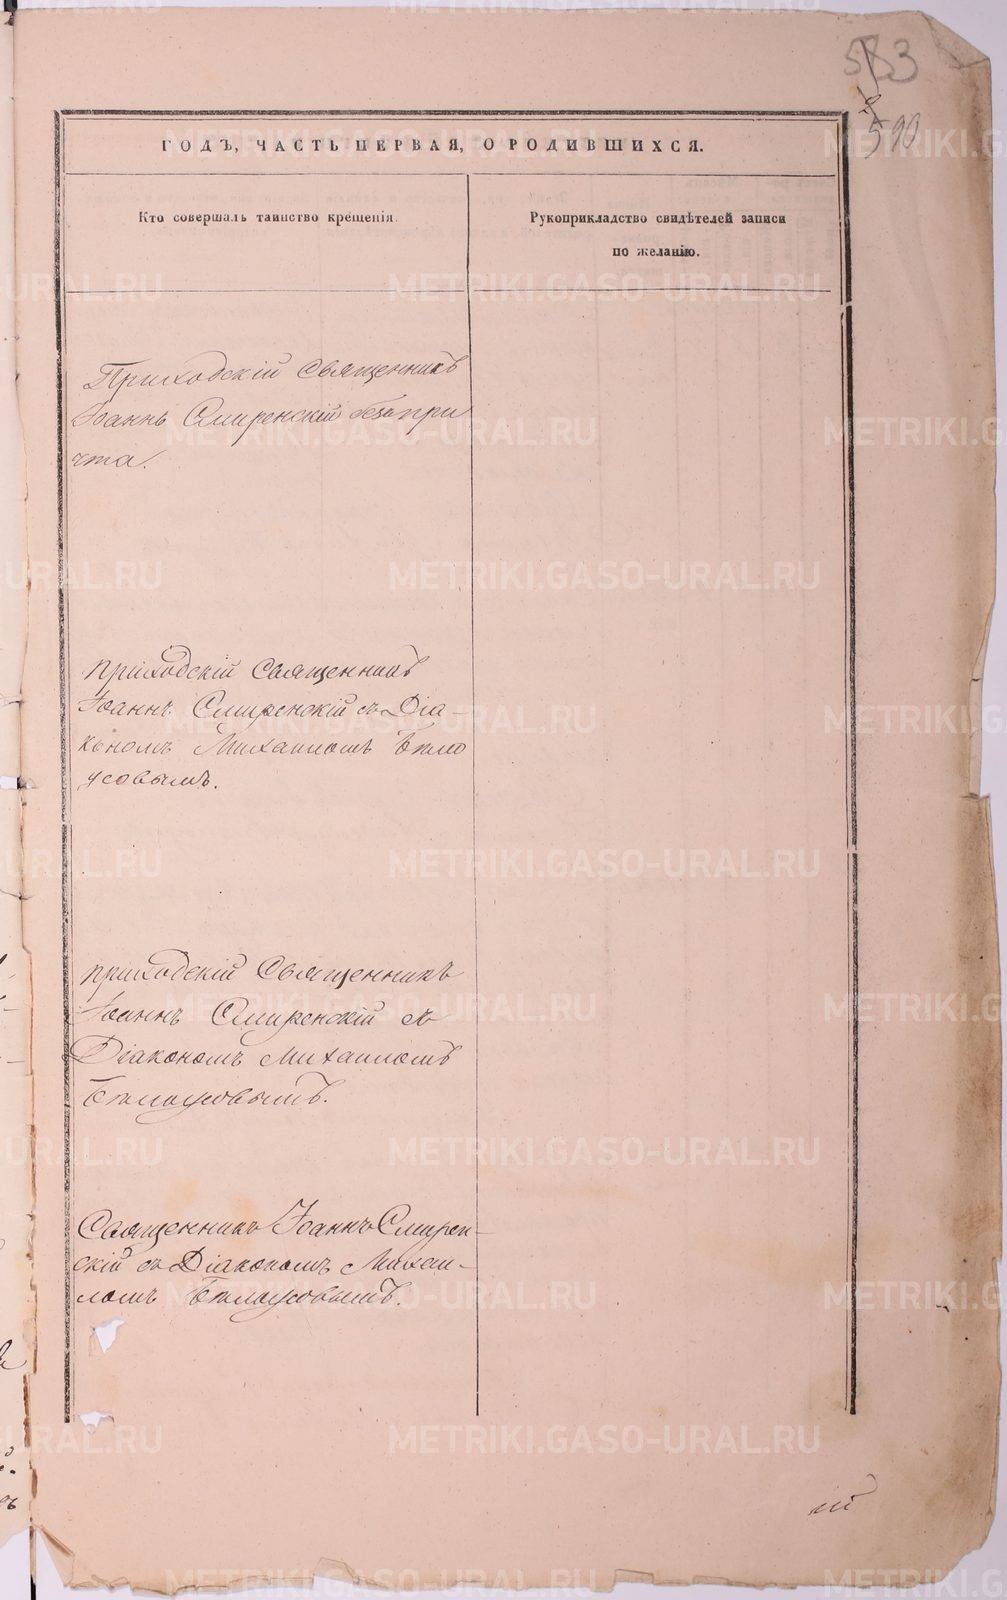 583
590
ГОДЪ, ЧАСТЬ ПЕРВАЯ, О РОДИВШИХСЯ.
Кто совершалъ таинство крещенія
Рукоприкладство свидѣтелей записи
по желанію.
Приходскій Священникъ
Іоаннъ Смиренскій безъ при
чта.
приходскій Священникъ
Іоаннъ Смиренскій съ Діа-
кономъ Михаиломъ Бѣло
усовымъ.
приходскій Священникъ
Іоаннъ Смиренскій съ
Діакономъ Михаиломъ
Бѣлоусовымъ.
Священникъ Іоаннъ Смирен-
скій съ Діакономъ Михаи-
ломъ Бѣлоусовымъ.
METRIKI.GASO-URAL.RU